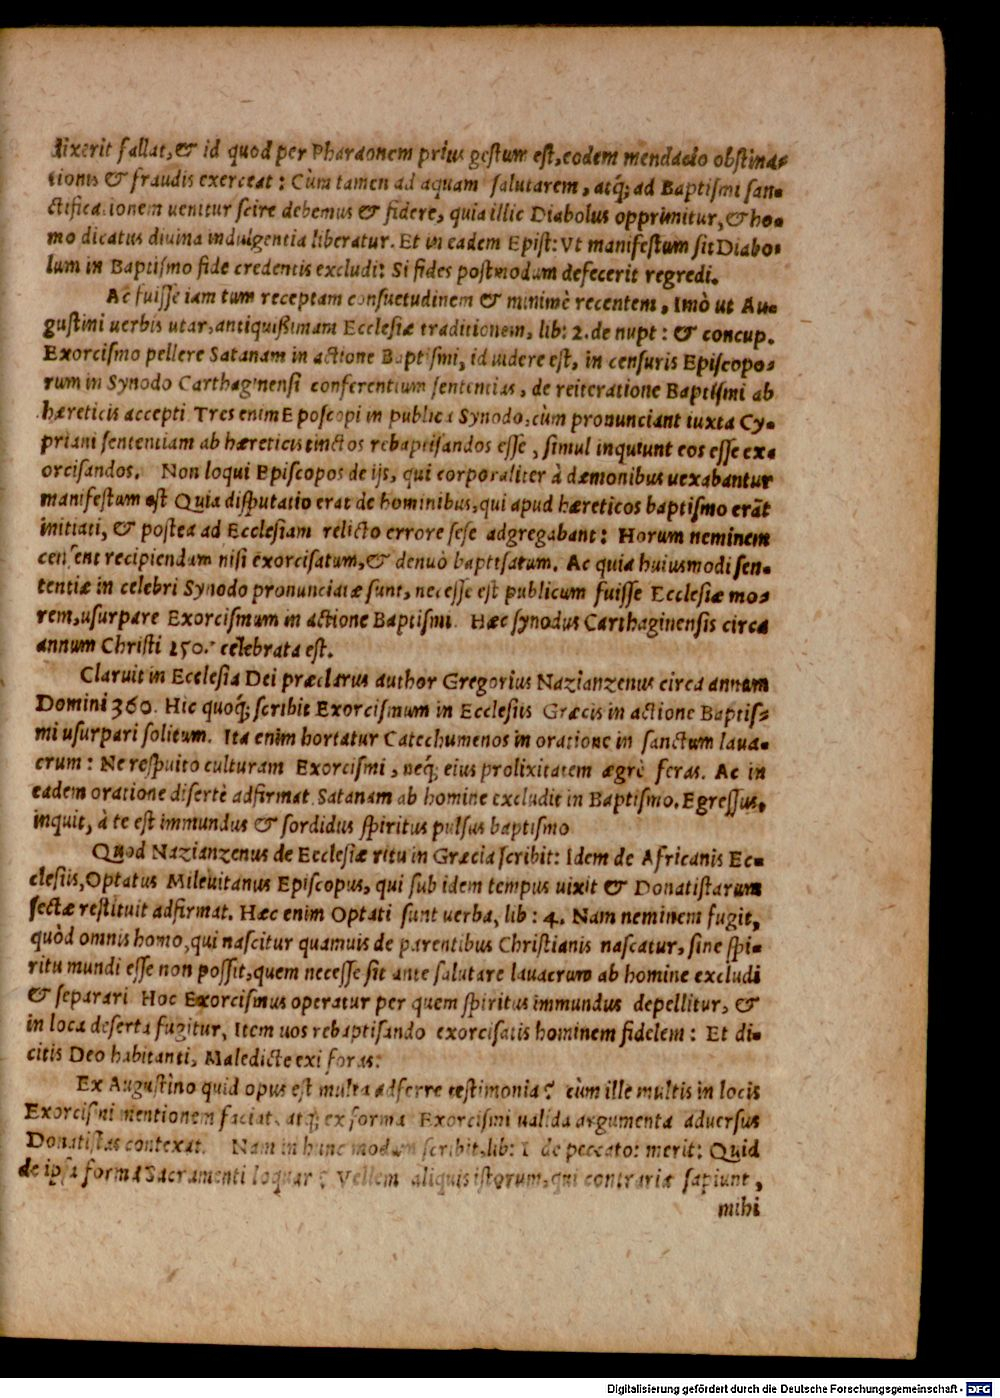 dixerit fallat, & id quod per Pharaonem prius gestum est, eodem mendacio obstina-
tionis & fraudis exerceat: Cùm tamen ad aquam salutarem, atq; ad Baptismi san-
ctificationem uenitur scire debemus & fidere, quia illic Diabolus opprimitur, & ho-
mo dicatus diuina indulgentia liberatur. Et in eadem Epist: Vt manifestum sit Diabo-
lum in Baptismo fide credentis excludi: Si fides postmodum defecerit regredi.
Ac fuisse iam tum receptam consuetudinem & minimè recentem, Imò ut Au-
gustini uerbis utar, antiquißimam Ecclesiæ traditionem, lib: 2. de nupt: & concup.
Exorcismo pellere Satanam in actione Baptismi, id uidere est, in censuris Episcopo-
rum in Synodo Carthaginensi conferentium sententias, de reiteratione Baptismi ab
hæreticis accepti Tres enim Eposcopi in publica Synodo, cùm pronunciant iuxta Cy-
priani sententiam ab hæreticis tinctos rebaptisandos esse, simul inquiunt eos esse ex-
orcisandos. Non loqui Episcopos de ijs, qui corporaliter à dæmonibus uexabantur
manifestum est Quia disputatio erat de hominibus, qui apud hæreticos baptismo erãt
initiati, & postea ad Ecclesiam relicto errore sese adgregabant: Horum neminem
censent recipiendum nisi exorcisatum, & denuò baptisatum. Ac quia huiusmodi sen-
tentiæ in celebri Synodo pronunciatæ sunt, necesse est publicum fuisse Ecclesiæ mo-
rem, usurpare Exorcismum in actione Baptismi. Hæc synodus Carthaginensis circa
annum Christi 250. celebrata est.
Claruit in Ecclesia Dei præclarus author Gregorius Nazianzenus circa annum
Domini 360. Hic quoq; scribit Exorcismum in Ecclesiis Græcis in actione Baptis-
mi usurpari solitum. Ita enim hortatur Catechumenos in oratione in sanctum laua-
crum: Ne respuito culturam Exorcismi, neq; eius prolixitatem ægrè feras. Ac in
eadem oratione disertè adfirmat Satanam ab homine excludi in Baptismo. Egressus,
inquit, à te est immundus & sordidus spiritus pulsus baptismo
Quod Nazianzenus de Ecclesiæ ritu in Græcia scribit: Idem de Africanis Ec-
clesiis, Optatus Mileuitanus Episcopus, qui sub idem tempus uixit & Donatistarum
sectæ restituit adfirmat. Hæc enim Optati sunt uerba, lib: 4. Nam neminem fugit,
quòd omnis homo, qui nascitur quamuis de parentibus Christianis nascatur, sine spi-
ritu mundi esse non possit, quem necesse sit ante salutare lauacrum ab homine excludi
& separari Hoc Exorcismus operatur per quem spiritus immundus depellitur, &
in loca deserta fugitur, Item uos rebaptisando exorcisatis hominem fidelem: Et di-
citis Deo habitanti, Maledicte exi foras:
Ex Augustino quid opus est multa adferre testimonia? cùm ille multis in locis
Exorcismi mentionem faciat, atq; ex forma Exorcismi ualida argumenta aduersus
Donatistas contexat. Nam in hunc modum scribit, lib: I de peccato: merit: Quid
de ipsa forma Sacramenti loquar? Vellem aliquis istorum, qui contraria sapiunt,
mihi
Digitalisierung gefördert durch die Deutsche Forschungsgemeinschaft - DFG